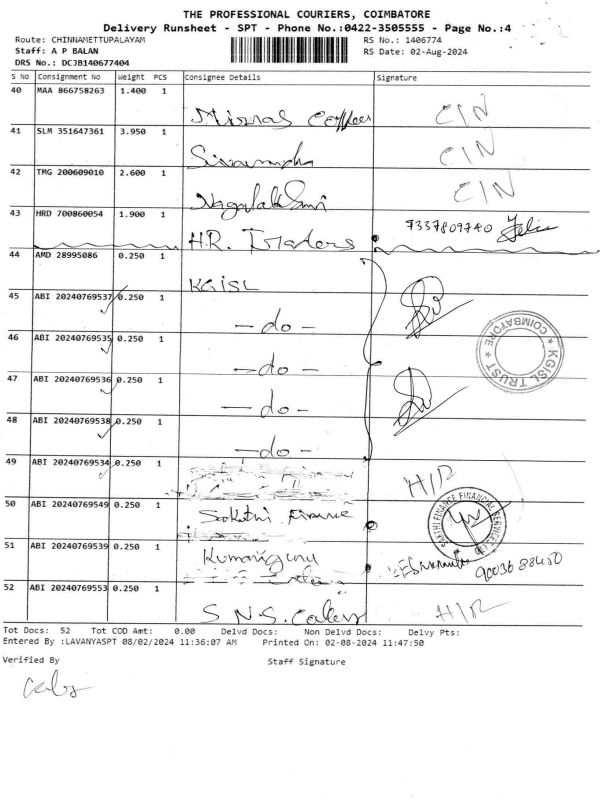 THE PROFESSIONAL COURIERS, COIMBATORE
Delivery Runsheet - SPT - Phone No.:0422-3505555 - Page No.:4
Route: CHINNAMETTUPALAYAM RS No.: 1406774
Staff: A P BALAN RS Date: 02-Aug-2024
DRS No.: DCJB140677404
S No Consignment No Weight PCS Consignee Details Signature
40 MAA 866758263 1.400 1
CIN
41 SLM 351647361 3.950 1
CIN
42 TMG 200609010 2.600 1
Nagalakshmi CIN
43 HRD 700860054 1.900 1
H.R. Traders 7337809740
44 AMD 28995086 0.250 1
KGiSL
45 ABI 20240769537 0.250 1
- do -
46 ABI 20240769535 0.250 1
- do -
KGISL TRUST ★ COIMBATORE ★
47 ABI 20240769536 0.250 1
- do -
48 ABI 20240769538 0.250 1
- do -
49 ABI 20240769534 0.250 1
H/R
50 ABI 20240769549 0.250 1
Sakthi Finance
SAKTHI FINANCE FINANCIAL SERVICES
51 ABI 20240769539 0.250 1
52 ABI 20240769553 0.250 1
S.N.S. H/R
Tot Docs: 52 Tot COD Amt: 0.00 Delvd Docs: Non Delvd Docs: Delvy Pts:
Entered By :LAVANYASPT 08/02/2024 11:36:07 AM Printed On: 02-08-2024 11:47:50
Verified By Staff Signature